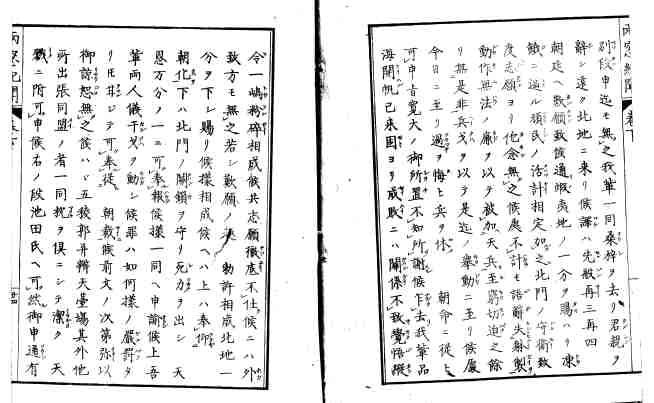 別段申迄モ無之我輩一同桑梓ヲ去リ君親ヲ
辭シ遠ク北地ニ来リ候譯ハ先般再三再四
朝廷ヘ歎願致候通蝦夷地ノ一分ヲ賜ハリ凍
餓ニ逼ル頑民ノ活計相定如之北門ノ守衛致
度志願ヨリ他念無之候處不計モ語辭失敬
動作無法ノ廉ヲ以テ被加天兵至窮切迫之餘
リ無是非兵戈ヲ以テ是迄ノ擧動ニ至リ候處
今日ニ至リ過ヲ悔ヒ兵ヲ休 朝命ニ從ヒ
可申旨寛大ノ御所置不知所謝候乍去我輩品
海開帆已来固ヨリ成敗ニハ關係不致覺悟縦
令一嶋粉碎相成候共志願徹底不仕候ニハ外
致方モ無之若シ歎願ノ通 勅許相成北地一
分ヲ下シ賜リ候様相成候ヘハ上ハ奉仰
朝化下ハ北門ノ關鎖ヲ守リ死力ヲ出シ 天
恩万分ノ一ニ可奉報候様一同ヘ申諭候上吾
輩両人儀干戈ヲ動シ候罪ハ如何様ノ嚴罰タ
リ圧甘シテ可奉從 朝裁候前文ノ次第弥以
御諒恕無之候ハヽ五稜郭并辨天臺場其外他
所出張同盟ノ者一同枕ヲ倶ニシテ潔ク 天
戮ニ附可申候右ノ段池田氏ヘ可然御申通有